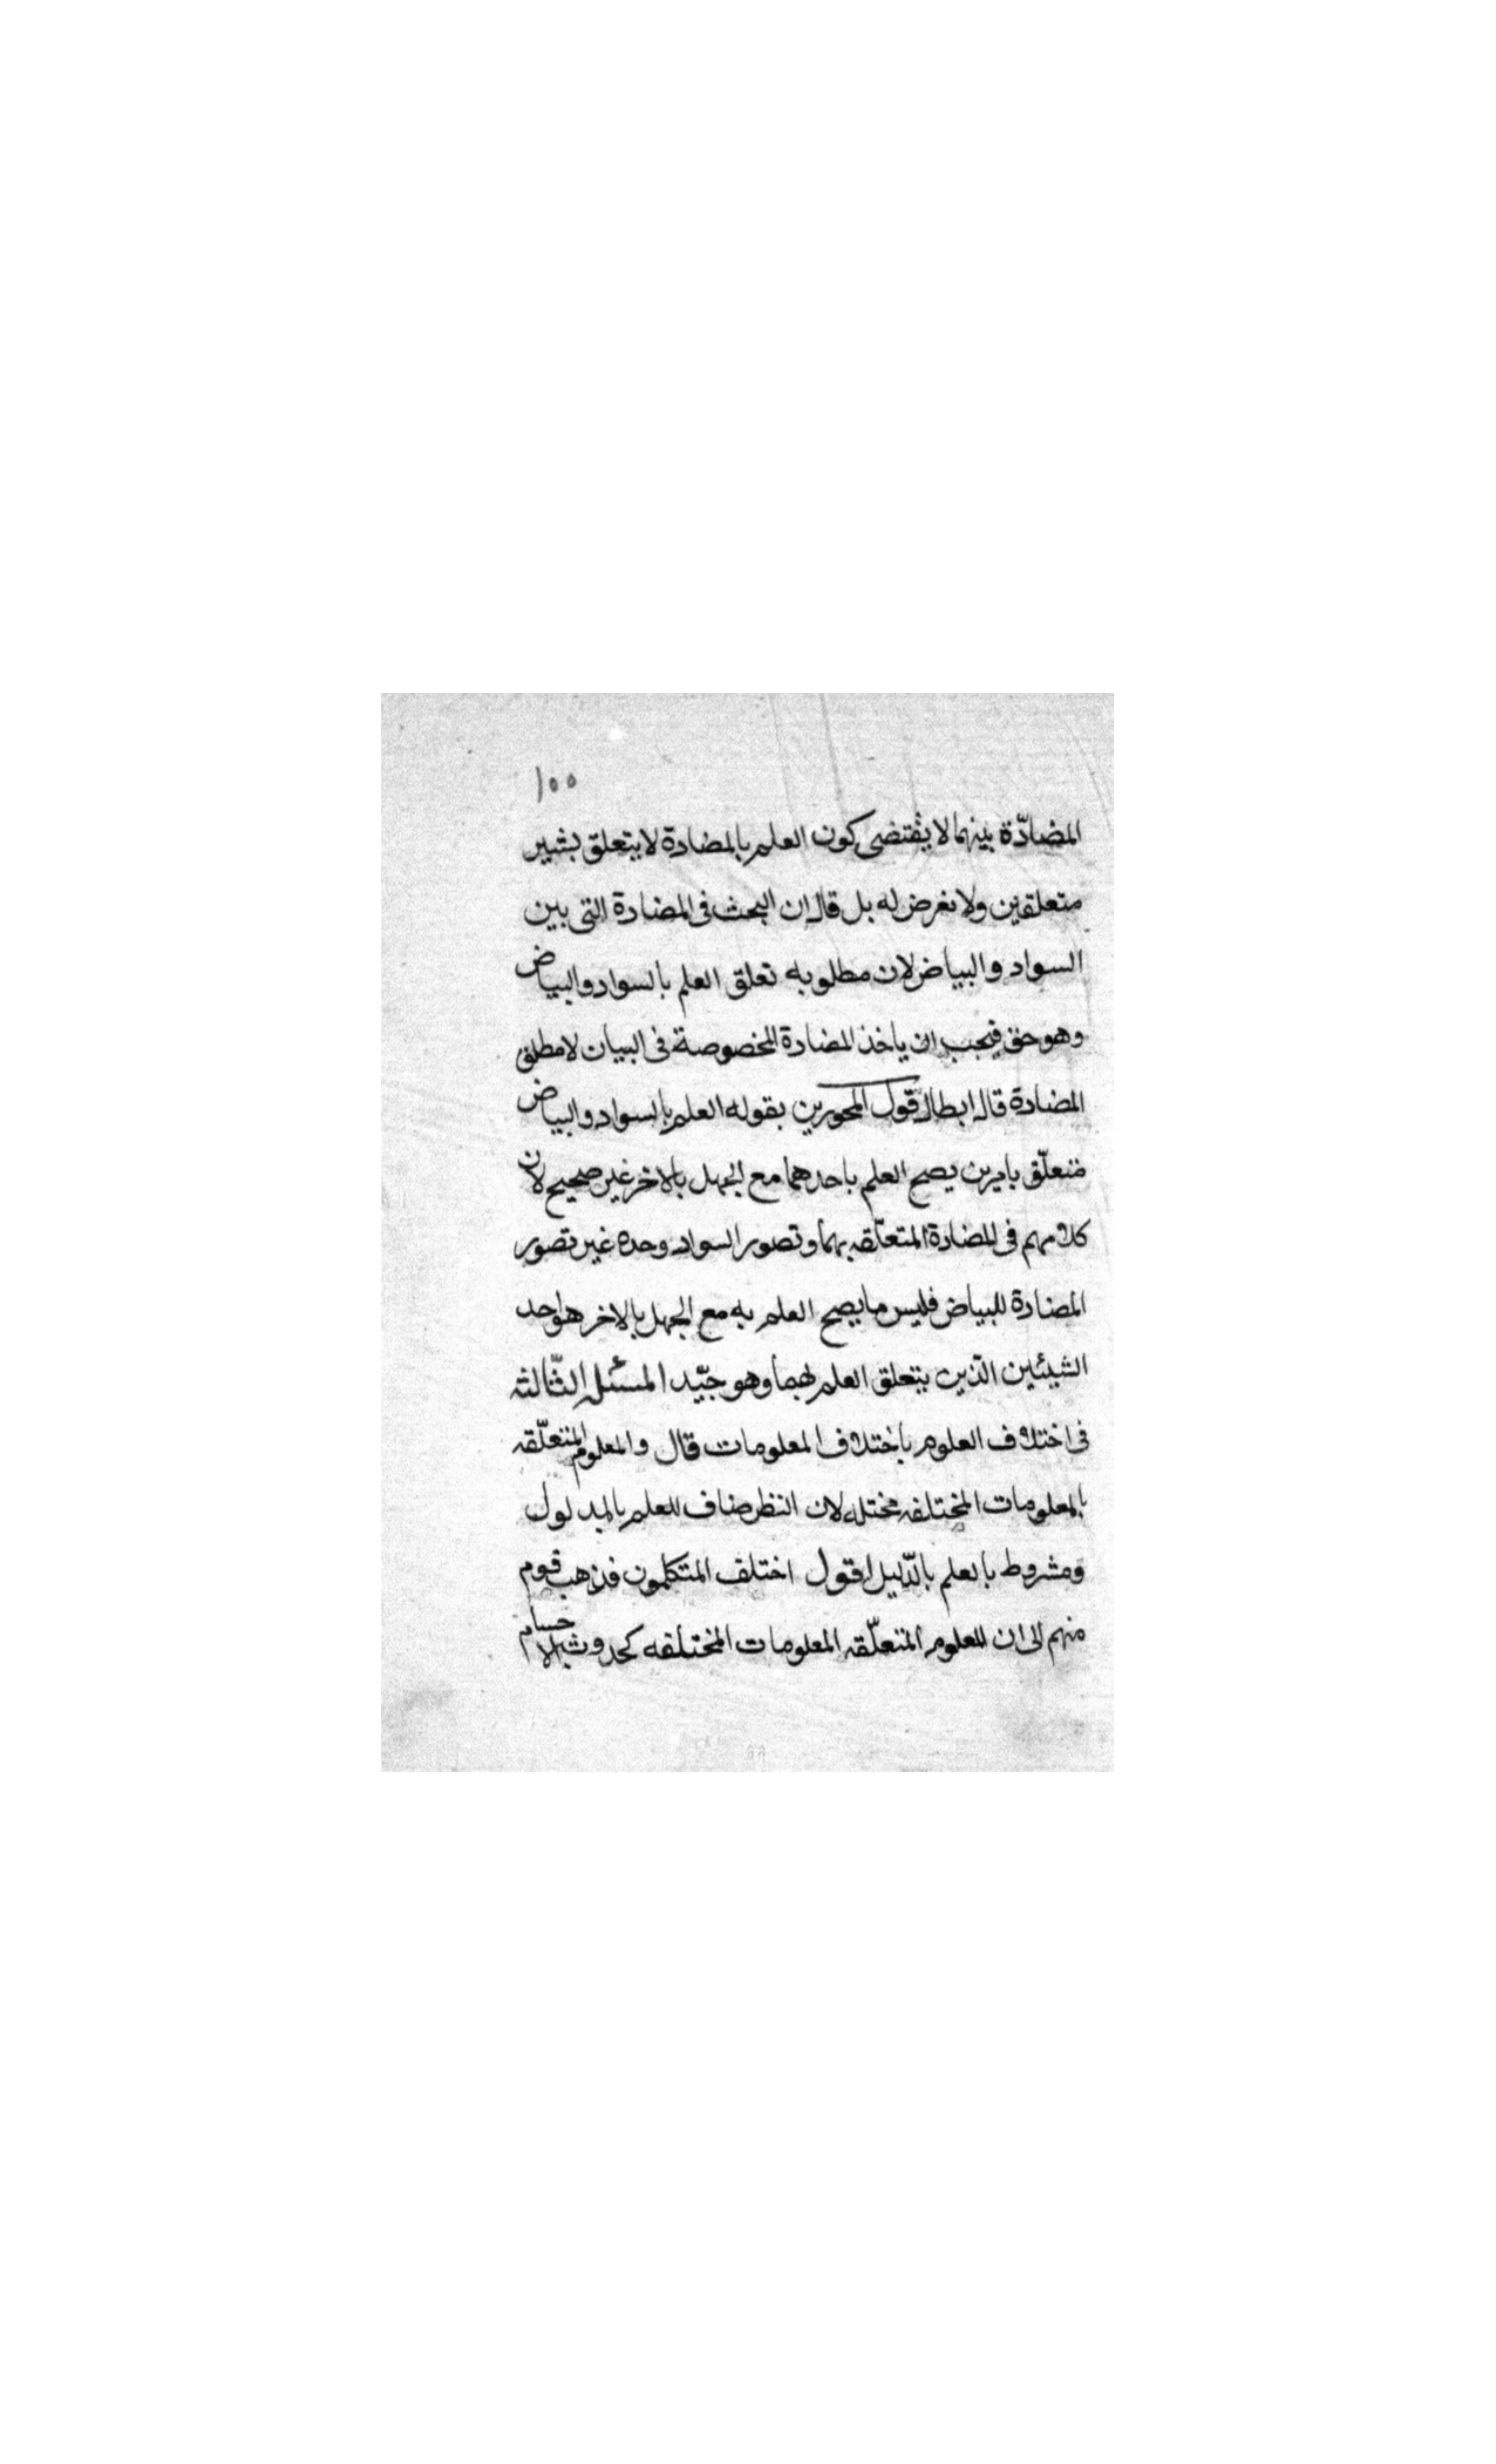 ١٠٠
المضادّة بينهما لا يقتضى كون العلم بالمضادة لا يتعلق بشيئين
متعلقين ولا تعرض له بل قال ان البحث فى المضادة التى بين
السواد والبياض لان مطلوبه تعلق العلم بالسواد والبياض
وهو حق فيجب ان ياخذ المضادة المخصوصة فى البيان لا مطلق
المضادة قال ابطال قول المجوزين بقوله العلم بالسواد والبياض
متعلّق بامرين يصح العلم باحدهما مع الجهل بالاخر غير صحيح لان
كلامهم فى المضادة المتعلّقه بهما وتصور السواد وحده غير تصور
المضادة للبياض فليس ما يصح العلم به مع الجهل بالاخر هو احد
الشيئين الذين يتعلق العلم بهما وهو جيّد المسئله الثّالثه
فى اختلاف العلوم باختلاف المعلومات قال والمعلوم المتعلّقه
بالمعلومات المختلفه مختلفه لان النظر مناف للعلم بالمدلول
ومشروط بالعلم بالدّليل اقول اختلف المتكلمون فذهب قوم
منهم الى ان العلوم المتعلّقه المعلومات المختلفه كحدوث الاجسام